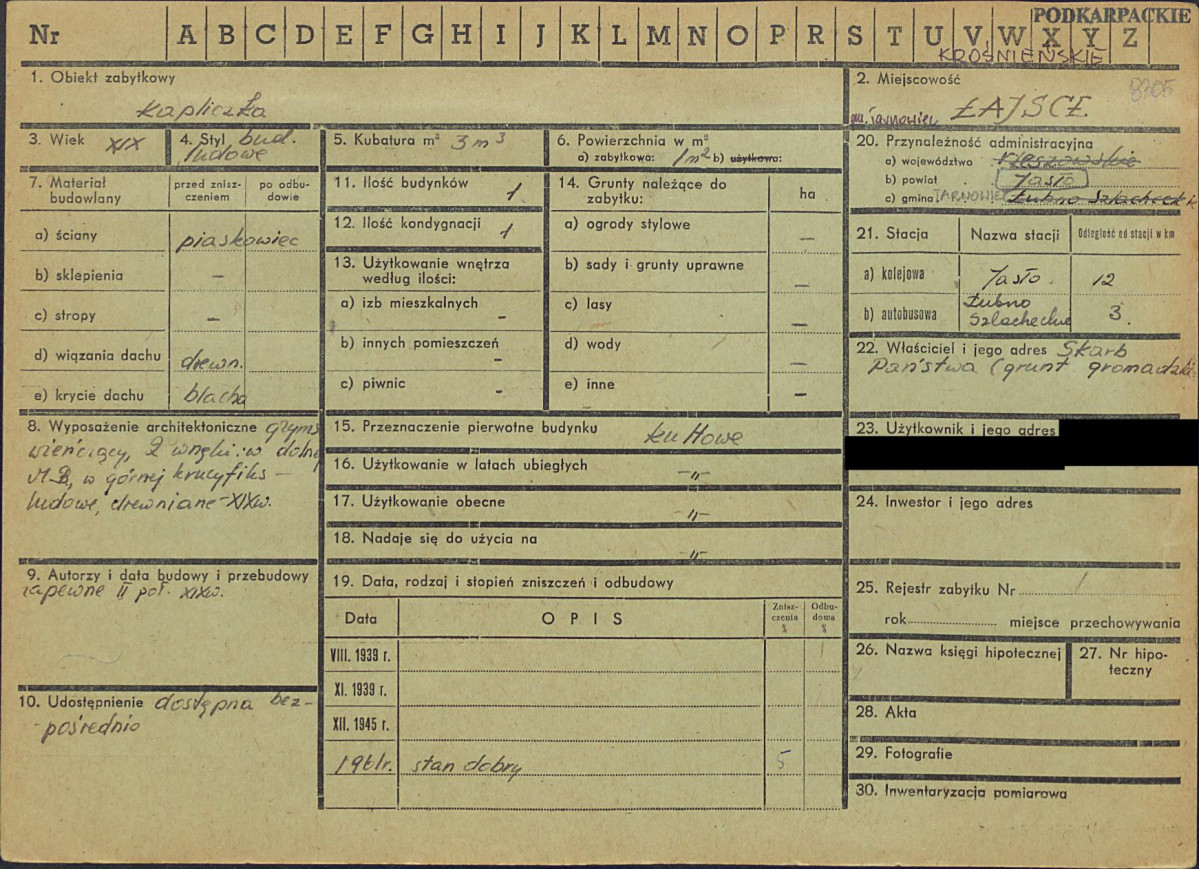 PODKARPACKIE
Nr A B C D E F G H I J K L M N O P R S T U V W X Y Z
KROŚNIEŃSKIE
1. Obiekt zabytkowy
kapliczka
2. Miejscowość
8705
gm. Tarnowiec ŁAJSCE.
3. Wiek XIX
4. Styl bud.
ludowe
5. Kubatura m³ 3 m³
6. Powierzchnia w m²
a) zabytkowa: 1m² b) użytkowa:
7. Materiał budowlany
przed zniszczeniem
po odbudowie
a) ściany piaskowiec
b) sklepienia –
c) stropy –
d) wiązania dachu drewn.
e) krycie dachu blacha
8. Wyposażenie architektoniczne gzyms
wieńczący, 2 wnęki: w dolnej
M.B, w górnej krucyfiks –
ludowe, drewniane – XIXw.
9. Autorzy i data budowy i przebudowy
zapewne II poł. XIXw.
10. Udostępnienie dostępna bez-
-pośrednio
11. Ilość budynków 1
12. Ilość kondygnacji 1
13. Użytkowanie wnętrza
według ilości:
a) izb mieszkalnych –
b) innych pomieszczeń –
c) piwnic –
14. Grunty należące do
zabytku:
ha
a) ogrody stylowe –
b) sady i grunty uprawne –
c) lasy –
d) wody –
e) inne –
15. Przeznaczenie pierwotne budynku kultowe
16. Użytkowanie w latach ubiegłych -„-
17. Użytkowanie obecne -„-
18. Nadaje się do użycia na -„-
19. Data, rodzaj i stopień zniszczeń i odbudowy
Data OPIS Zniszczenia % Odbudowa %
VIII. 1939 r.
XI. 1939 r.
XII. 1945 r.
1961r. stan dobry 5
20. Przynależność administracyjna
a) województwo Rzeszowskie
b) powiat Jasło
c) gmina TARNOWIEC Łubno Szlacheckie
21. Stacja Nazwa stacji Odległość od stacji w km
a) kolejowa Jasło. 12
b) autobusowa Łubno
Szlacheckie 3.
22. Właściciel i jego adres Skarb
Państwa (grunt gromadzki
23. Użytkownik i jego adres
24. Inwestor i jego adres
25. Rejestr zabytku Nr /
rok miejsce przechowywania
26. Nazwa księgi hipotecznej
27. Nr hipo-
teczny
28. Akta
29. Fotografie
30. Inwentaryzacja pomiarowa